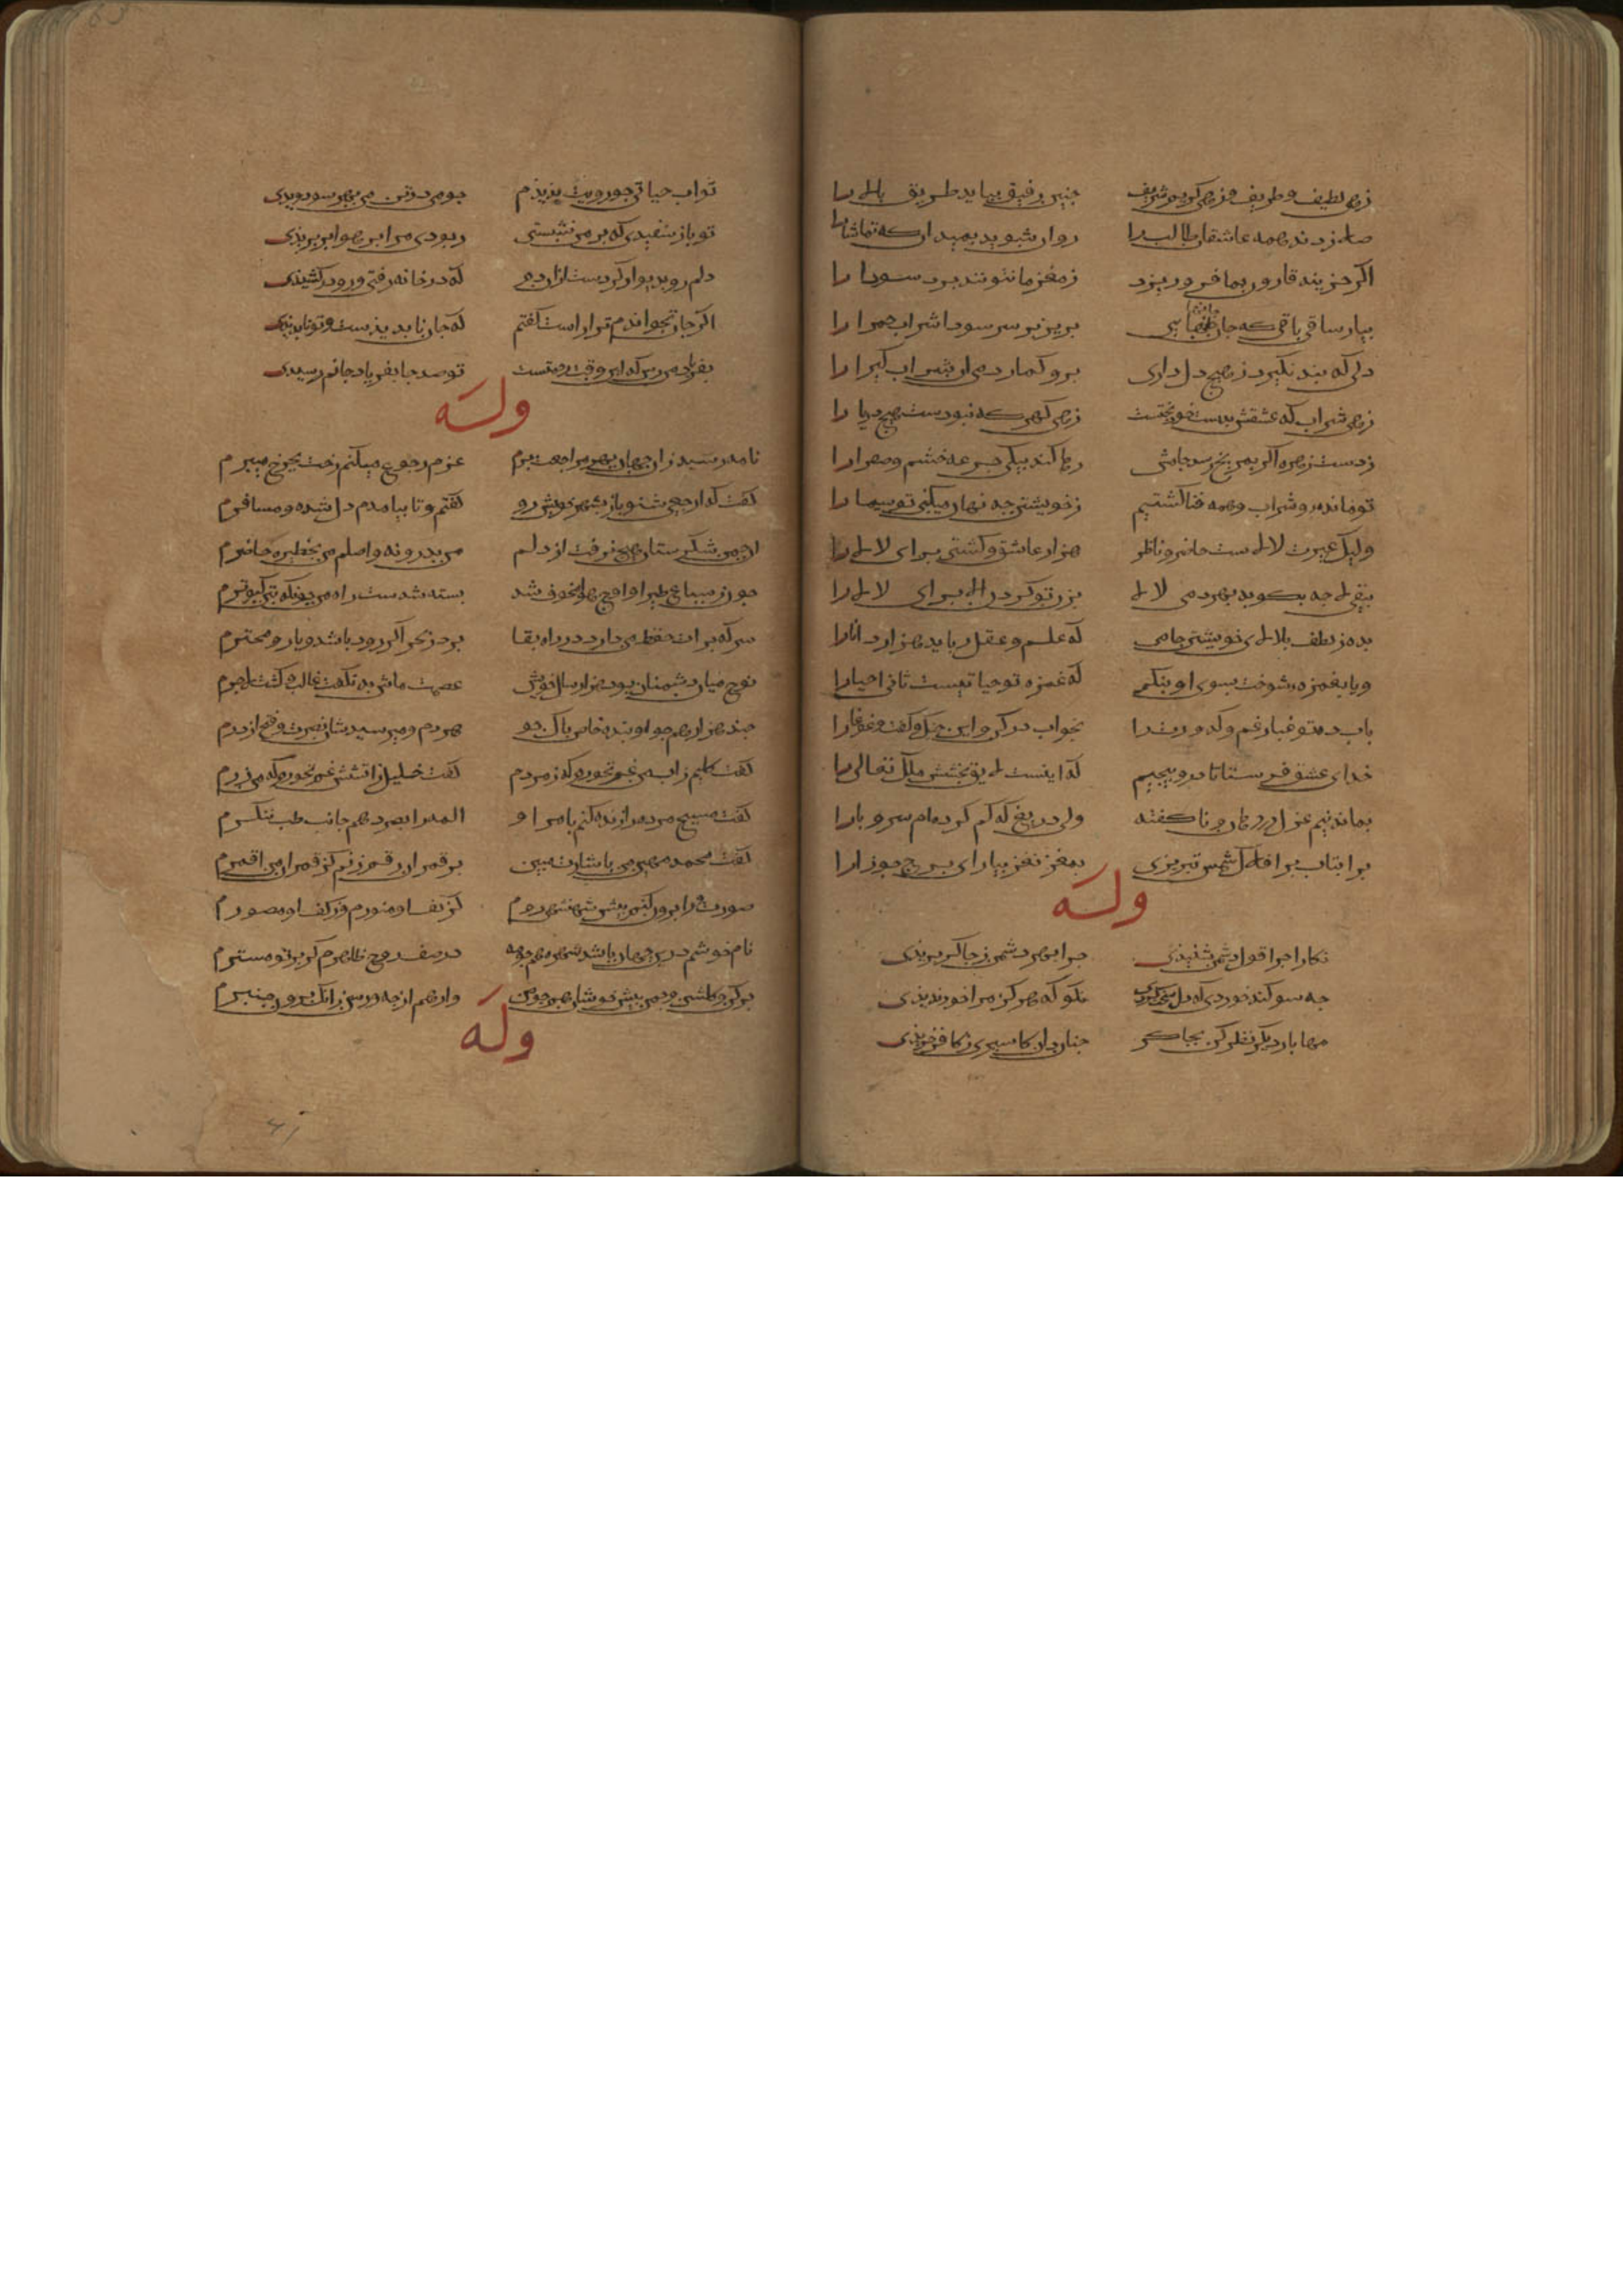 زهی لطیف و ظریف و زهی کریم و شریف چنین رفیق بباید طریق بالا را
صلا زدند همه عاشقان طالب را روان شوید بمیدان که تماشا را
اکر خزینه قارون بما فرو ریزد ز مغز ما نتوانند برد سودا را
بیار ساقی باقی که جان جانهایی بریز بر سر سودا شراب حمرا را
دلی که پند نکیرد ز هیچ دلداری برو کمار دمی آن شراب کیرا را
زهی شراب که عشقش بدست خود پختست زهی کهر که نبودست هیچ دریا را
ز دست زهره اکر بمریخ رسد جامش رها کند بیکی جرعه خشم و صفرا را
تو مانده و شراب و همه فنا کشتیم ز خویشتن چه نهان میکنی تو سیما را
ولیک غیرت لالاست حاضر و ناظر هزار عاشق و کشتی برای لالا را
بنفی لا چه بکوید بهر دمی لالا بزن تو کردن لا برای لالا را
بده ز لطف بلالای خویشتن جامی که علم و عقل رباید هزار دانا را
و یا بغمزه شوخت بسوی او بنکر که غمزه تو حیاتیست ثانی احیا را
بآب ده تو غبار غم و کدورت را بخواب در کن و این جنک و کفت و غوغا را
خدای عشق فرستاد تا درو پیچیم که اینست لایق بخشش ملک تعالی را
بماند نیم غزل در دهان و ناکفته ولی دریغ که کم کرده‌ام سر و پا را
برآ بتاب بر افلاک شمس تبریزی بمغز نغز بیارای برج جوزا را
وله
نکارا چرا قول دشمن شنیدی چرا بهر دشمن ز چاکر بریدی
چه سوکند خوردی که دل نکو که هرکز مرا خود ندیدی
مها بار دیکر نظر کن بچاکر چنان دان که اسیری ز کافر خریدی
تو آب حیاتی چو رویت بدیدم چو می در تن من بهر سو دویدی
تو باز سفیدی که بر من نشستی ربودی مرا بر هوا بر پریدی
دلم رو بدیوار کردست ازان دم که در خانه رفتی و رو در کشیدی
اکر جان بخواندم ترا راست کفتم که جان ناپدیدست و تو ناپدیدی
بفریاد من رس که این وقت رحمتست تو صد جا بفریاد جانم رسیدی
وله
نامه رسید زان جهان بهر مراجعت برم عزم رجوع میکنم رخت بچرخ میبرم
کفت که ارجعی شنو باز بشهر خویش رو کفتم و تا بیامدم دلشده و مسافرم
آن چمن شکرستان هیچ نرفت از دلم من بدرونه واصلم من بحظیره حاضرم
چون ز سباع طیر او اوج هوا مخوف شد بسته شدست راه من چونکه بتن کبوترم
سر که برات حفظ من دارد در راه بقا بر دز بحر اکر رود باشد و یار و محترم
نوح میان دشمنان بود هزار سال خویش عصمت ماش بد بکفت غالب و کشت لاجرم
چند هزار همچو او بنده خاص پاک جو هر دم و میرسیدشان نصرت و فتح از درم
کفت کلیم ز آب من غم نخورم که من درم کفت خلیل ز آتشش غم نخورم که من زرم
کفت مسیح مرده را زنده کنم بنام او اکمه را بصر دهم جانب طب ننکرم
کفت محمد مهین من باشارت مبین بر قمر آن رقم زنم کز قمران من اقمرم
صورت را برون کنم پیش شهنشهی روم کز تف او منورم وز کف او مصورم
نام خوشم درین جهان باشد شهره هم همه در صف روح ظاهرم کر بر تو مسترم
وله